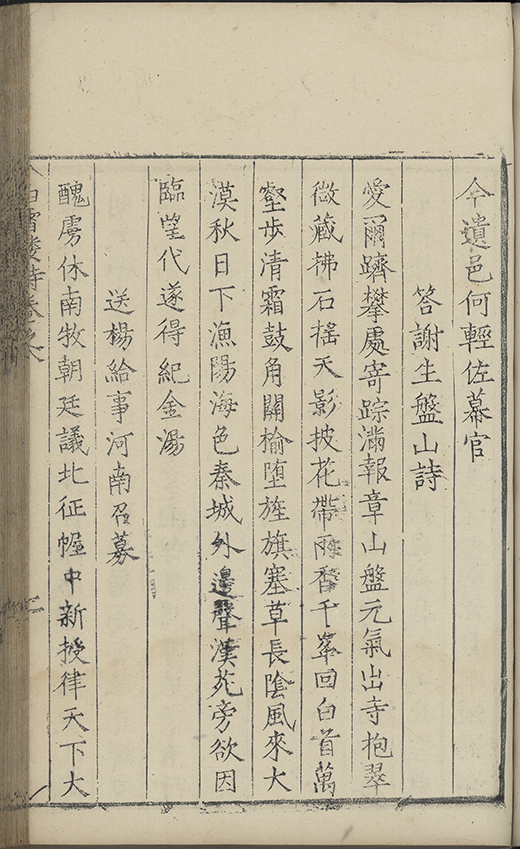 今遺邑何輕佐幕官
答謝生盤山詩
愛爾躋攀處寄踪滿報章山盤元氣出寺抱翠
微藏拂石搖天影披花帶雨香千峯回白首萬
壑步清霜鼓角關榆堕旌旗塞草長陰風來大
漠秋日下漁陽海色秦城外邊聲漢苑旁欲因
臨望代遂得紀金湯
送楊給事河南召募
醜虜休南牧朝廷議北征幄中新授律天下大
白雪樓詩卷之